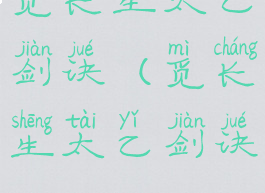 觅长生太乙
jiàn jué mì cháng
剑诀（觅长
shēng tài yǐ jiàn jué
生太乙剑诀